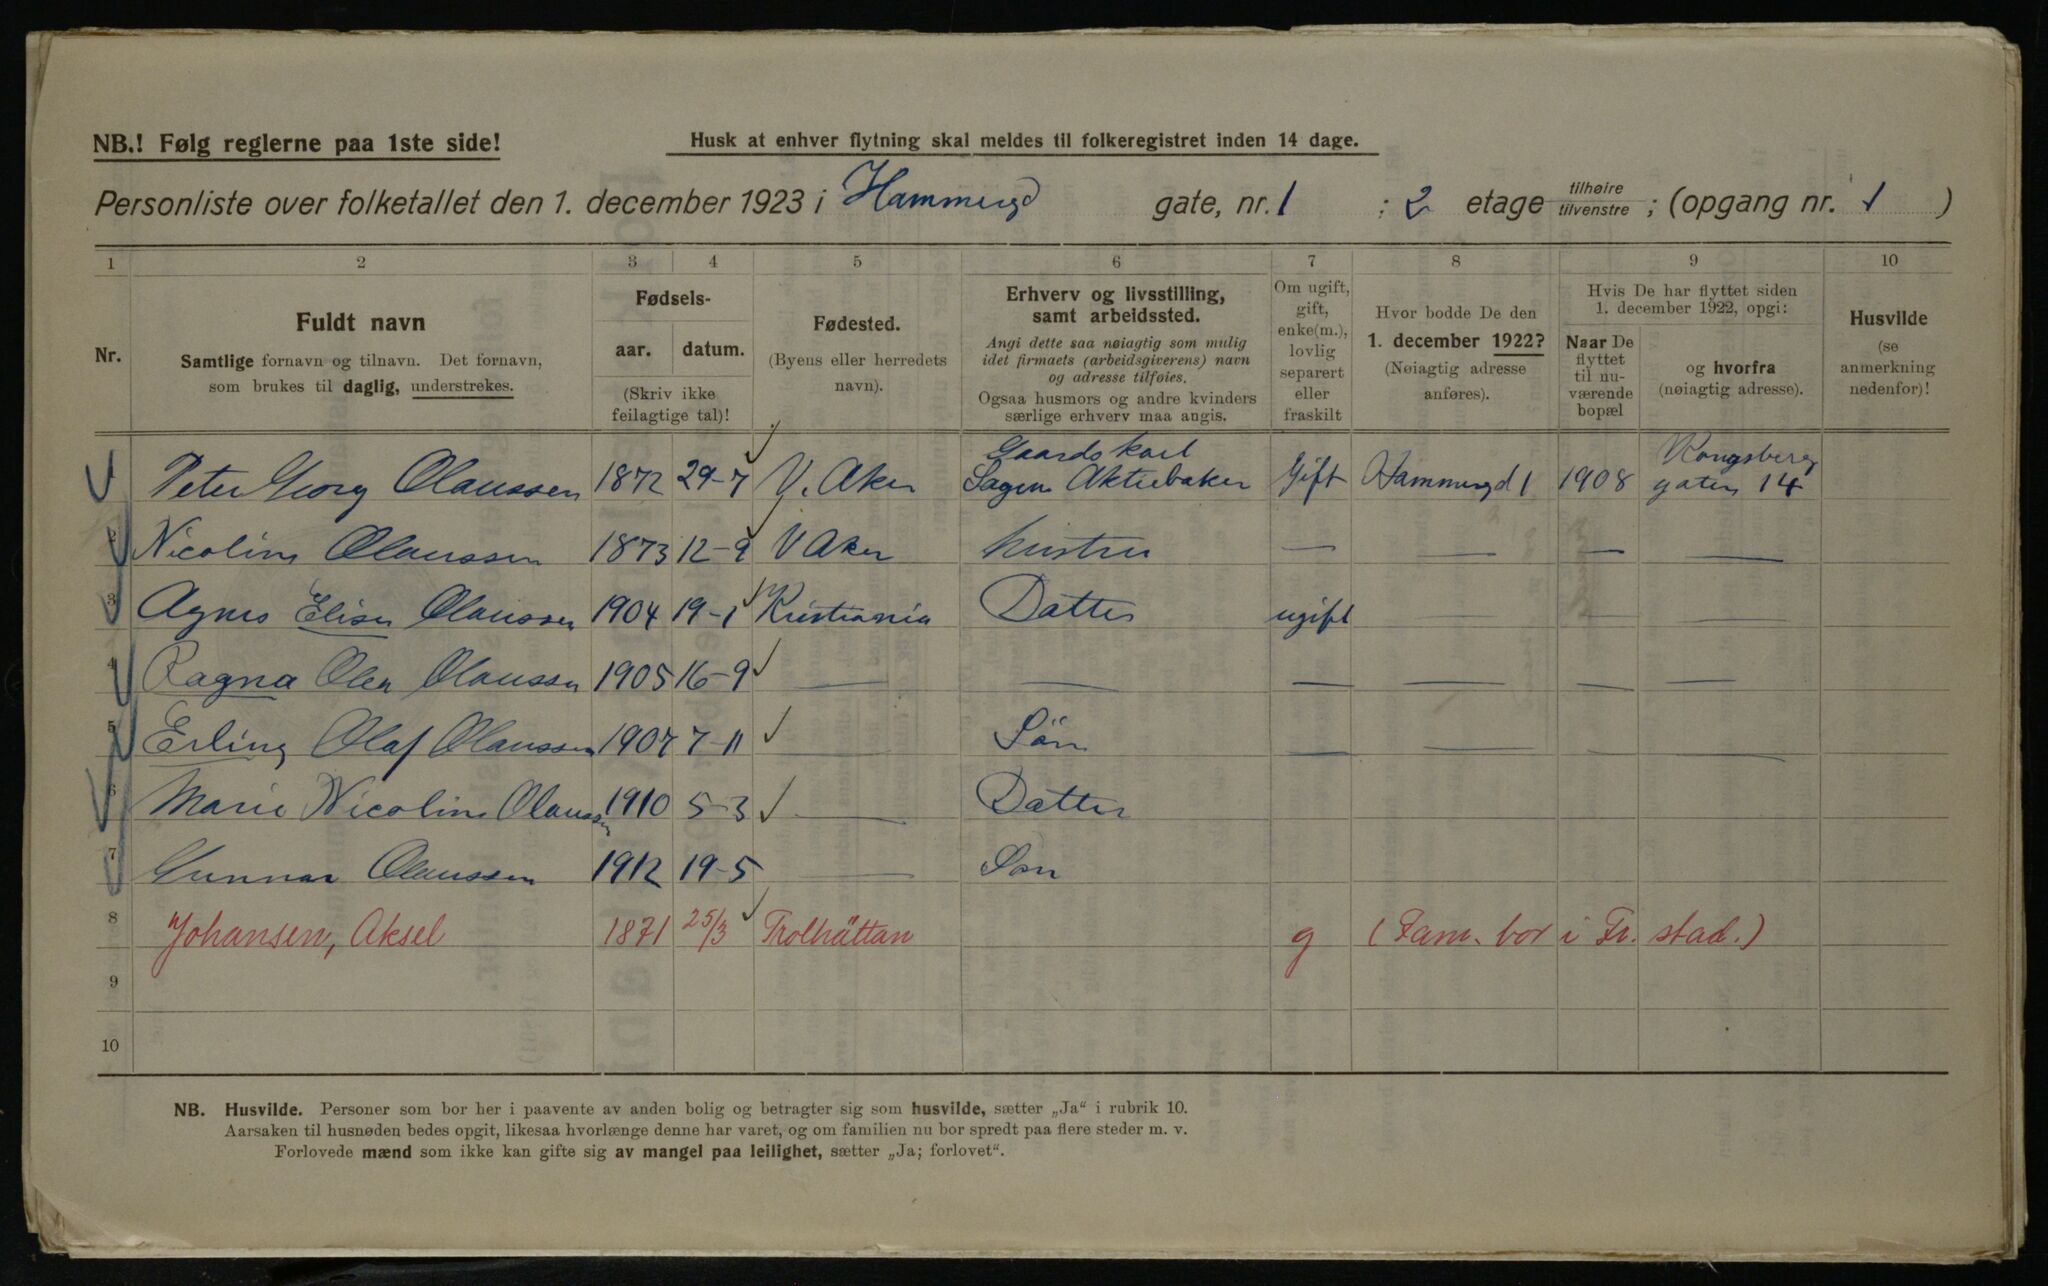 NB.! Følg reglerne paa 1ste side!
Husk at enhver flytning skal meldes til folkeregistret inden 14 dage.
Personliste over folketallet den 1. december 1923 i Hammergd gate, nr. 1 ; 2 etage tilhøire tilvenstre ; (opgang nr. 1 )
1 2 3 4 5 6 7 8 9 10
Nr.
Fuldt navn
Samtlige fornavn og tilnavn. Det fornavn,
som brukes til daglig, understrekes.
Fødsels-
aar. datum.
(Skriv ikke
feilagtige tal)!
Fødested.
(Byens eller herredets
navn).
Erhverv og livsstilling,
samt arbeidssted.
Angi dette saa nøiagtig som mulig
idet firmaets (arbeidsgiverens) navn
og adresse tilføies.
Ogsaa husmors og andre kvinders
særlige erhverv maa angis.
Om ugift,
gift,
enke(m.),
lovlig
separert
eller
fraskilt
Hvor bodde De den
1. december 1922?
(Nøiagtig adresse
anføres).
Hvis De har flyttet siden
1. december 1922, opgi:
Naar De
flyttet
til nu-
værende
bopæl
og hvorfra
(nøiagtig adresse).
Husvilde
(se
anmerkning
nedenfor)!
1 Peter Georg Olaussen 1872 29-7 V. Aker Gaardskarl Sagens Aktiebakeri Gift Hammergd 1 1908 Kongsberg gaten 14
2 Nicoline Olaussen 1873 12-9 V Aker hustru — — — —
3 Agnes Elise Olaussen 1904 19-1 Kristiania Datter ugift — — —
4 Ragna Olea Olaussen 1905 16-9 — — — — — —
5 Erling Olaf Olaussen 1907 7-11 — Søn — — — —
6 Marie Nicoline Olaussen 1910 5-3 — Datter
7 Gunnar Olaussen 1912 19-5 — Søn
8 Johansen, Aksel 1871 25/3 Trolhättan g (Fam. bor i Fr. stad.)
9
10
NB. Husvilde. Personer som bor her i paavente av anden bolig og betragter sig som husvilde, sætter „Ja“ i rubrik 10.
Aarsaken til husnøden bedes opgit, likesaa hvorlænge denne har varet, og om familien nu bor spredt paa flere steder m. v.
Forlovede mænd som ikke kan gifte sig av mangel paa leilighet, sætter „Ja; forlovet“.